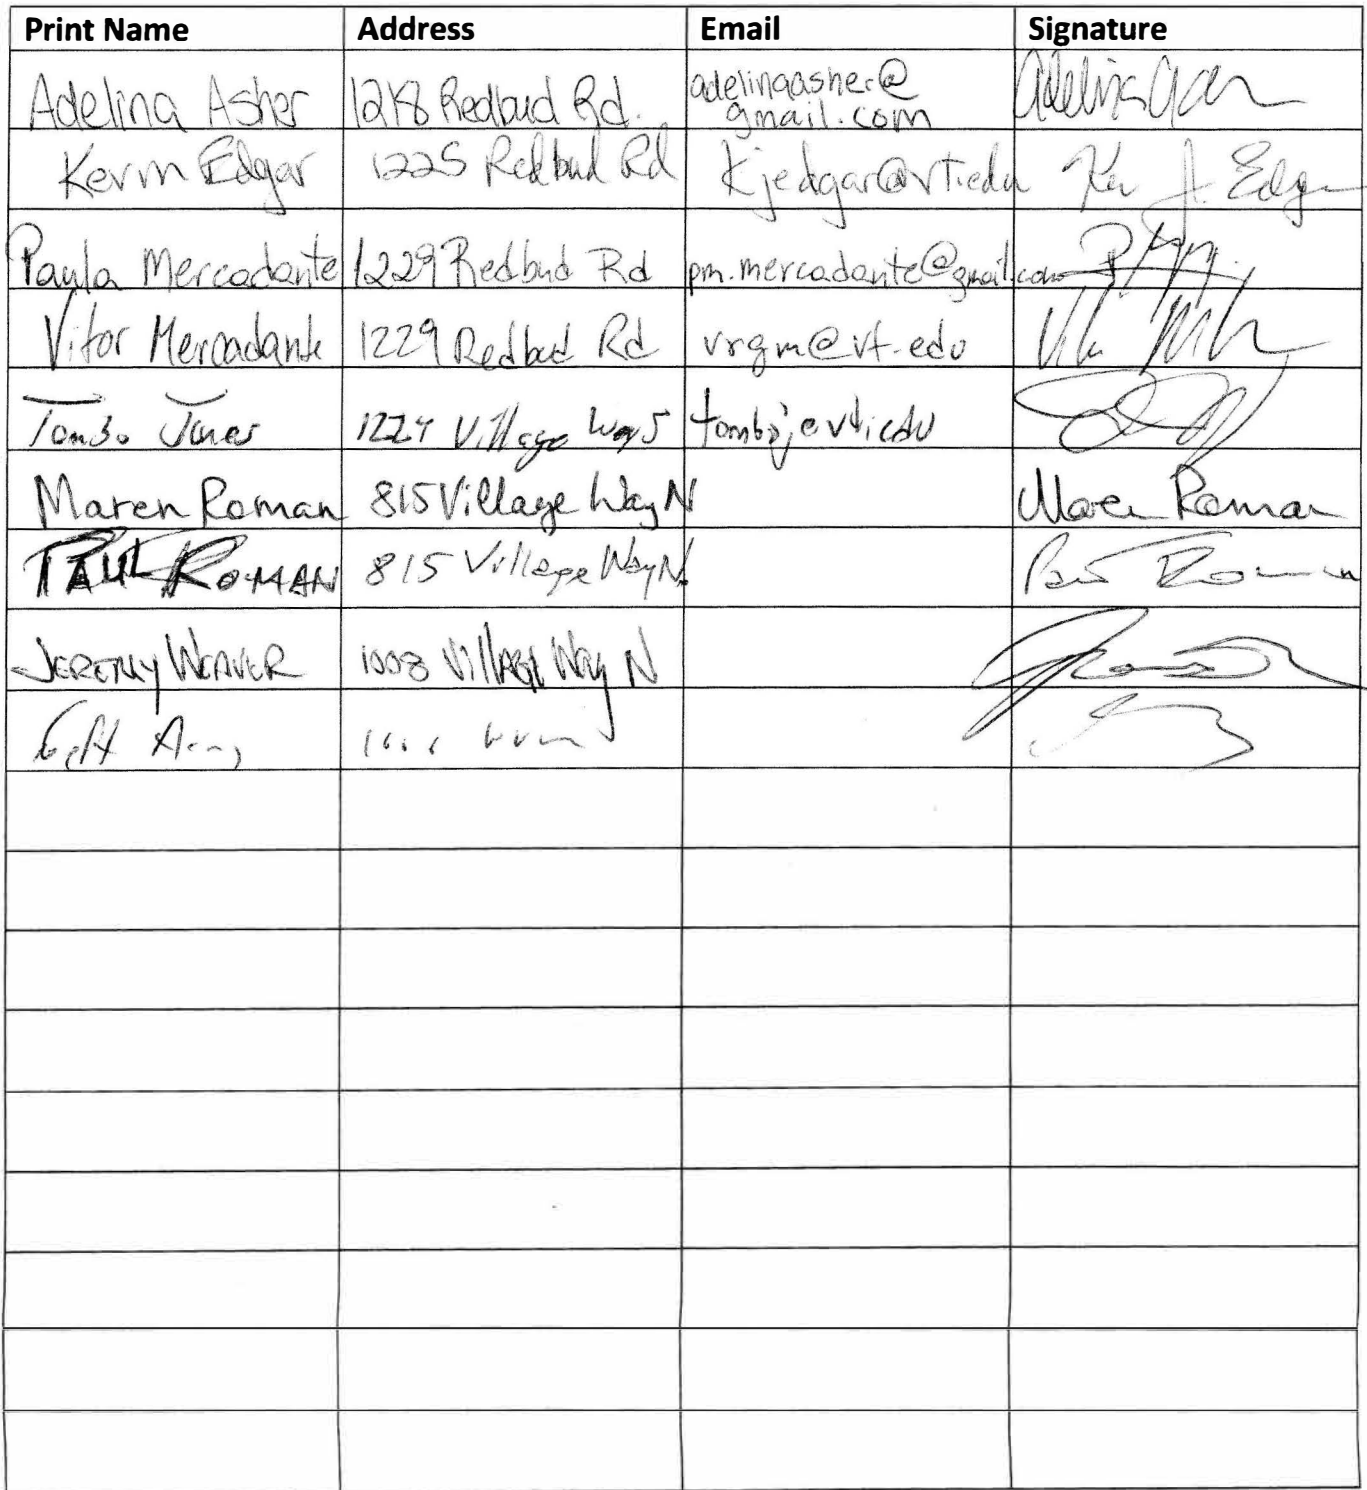 Print Name Address Email Signature
Adelina Asher 1218 Redbud Rd. adelinaasher@
gmail.com
Kevin Edgar 1225 Redbud Rd kjedgar@vt.edu Edgar
Paula Mercadante 1229 Redbud Rd pm.mercadante@gmail.com
Vitor Mercadante 1229 Redbud Rd vrgm@vt.edu
Tombo Jones 1224 Village Way S tomboj@vt.edu
Maren Roman 815 Village Way N Maren Roman
PAUL ROMAN 815 Village Way N. Paul Roman
JEREMY WEAVER 1008 Village Way N